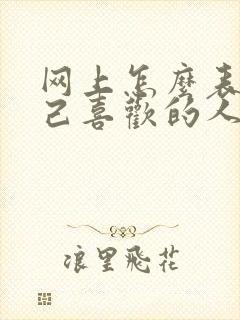 网上怎麼表
己喜歡的人
浪里飛花